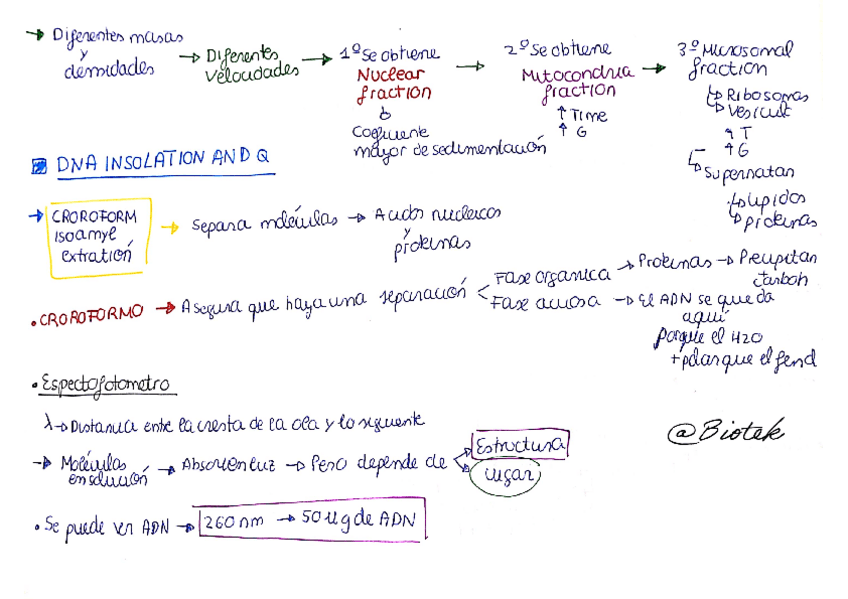 → Diferentes masas
y
densidades
→ Diferentes
velocidades
→ 1º Se obtiene
Nuclear
fraction
Coeficiente
mayor de sedimentación
→ 2º Se obtiene
Mitocondria
fraction
↑ Time
↑ G
→ 3º Microsomal
fraction
↳ Ribosomas
↳ Vesicul
↑ T
↑ G
↳ Supernatan
↳ Lípidos
↳ proteínas
DNA INSOLATION AND Q
→ CROROFORM
isoamyl
extratión
→ Separa moléculas → Acidos nucleicos
y
proteínas
• CROROFORMO → Asegura que haya una separación
Fase organica → Proteínas → Precipitan
Fase acuosa → El ADN se queda
aquí
porque el H2O
+ polar que el fenol
• Espectofotometro
λ → Distancia entre la cresta de la ola y lo siguiente
→ Moléculas
en solución
→ Absorven luz → Pero depende de
Estructura
Lugar
• Se puede ver ADN → 260 nm → 50 ug de ADN
@Biotek